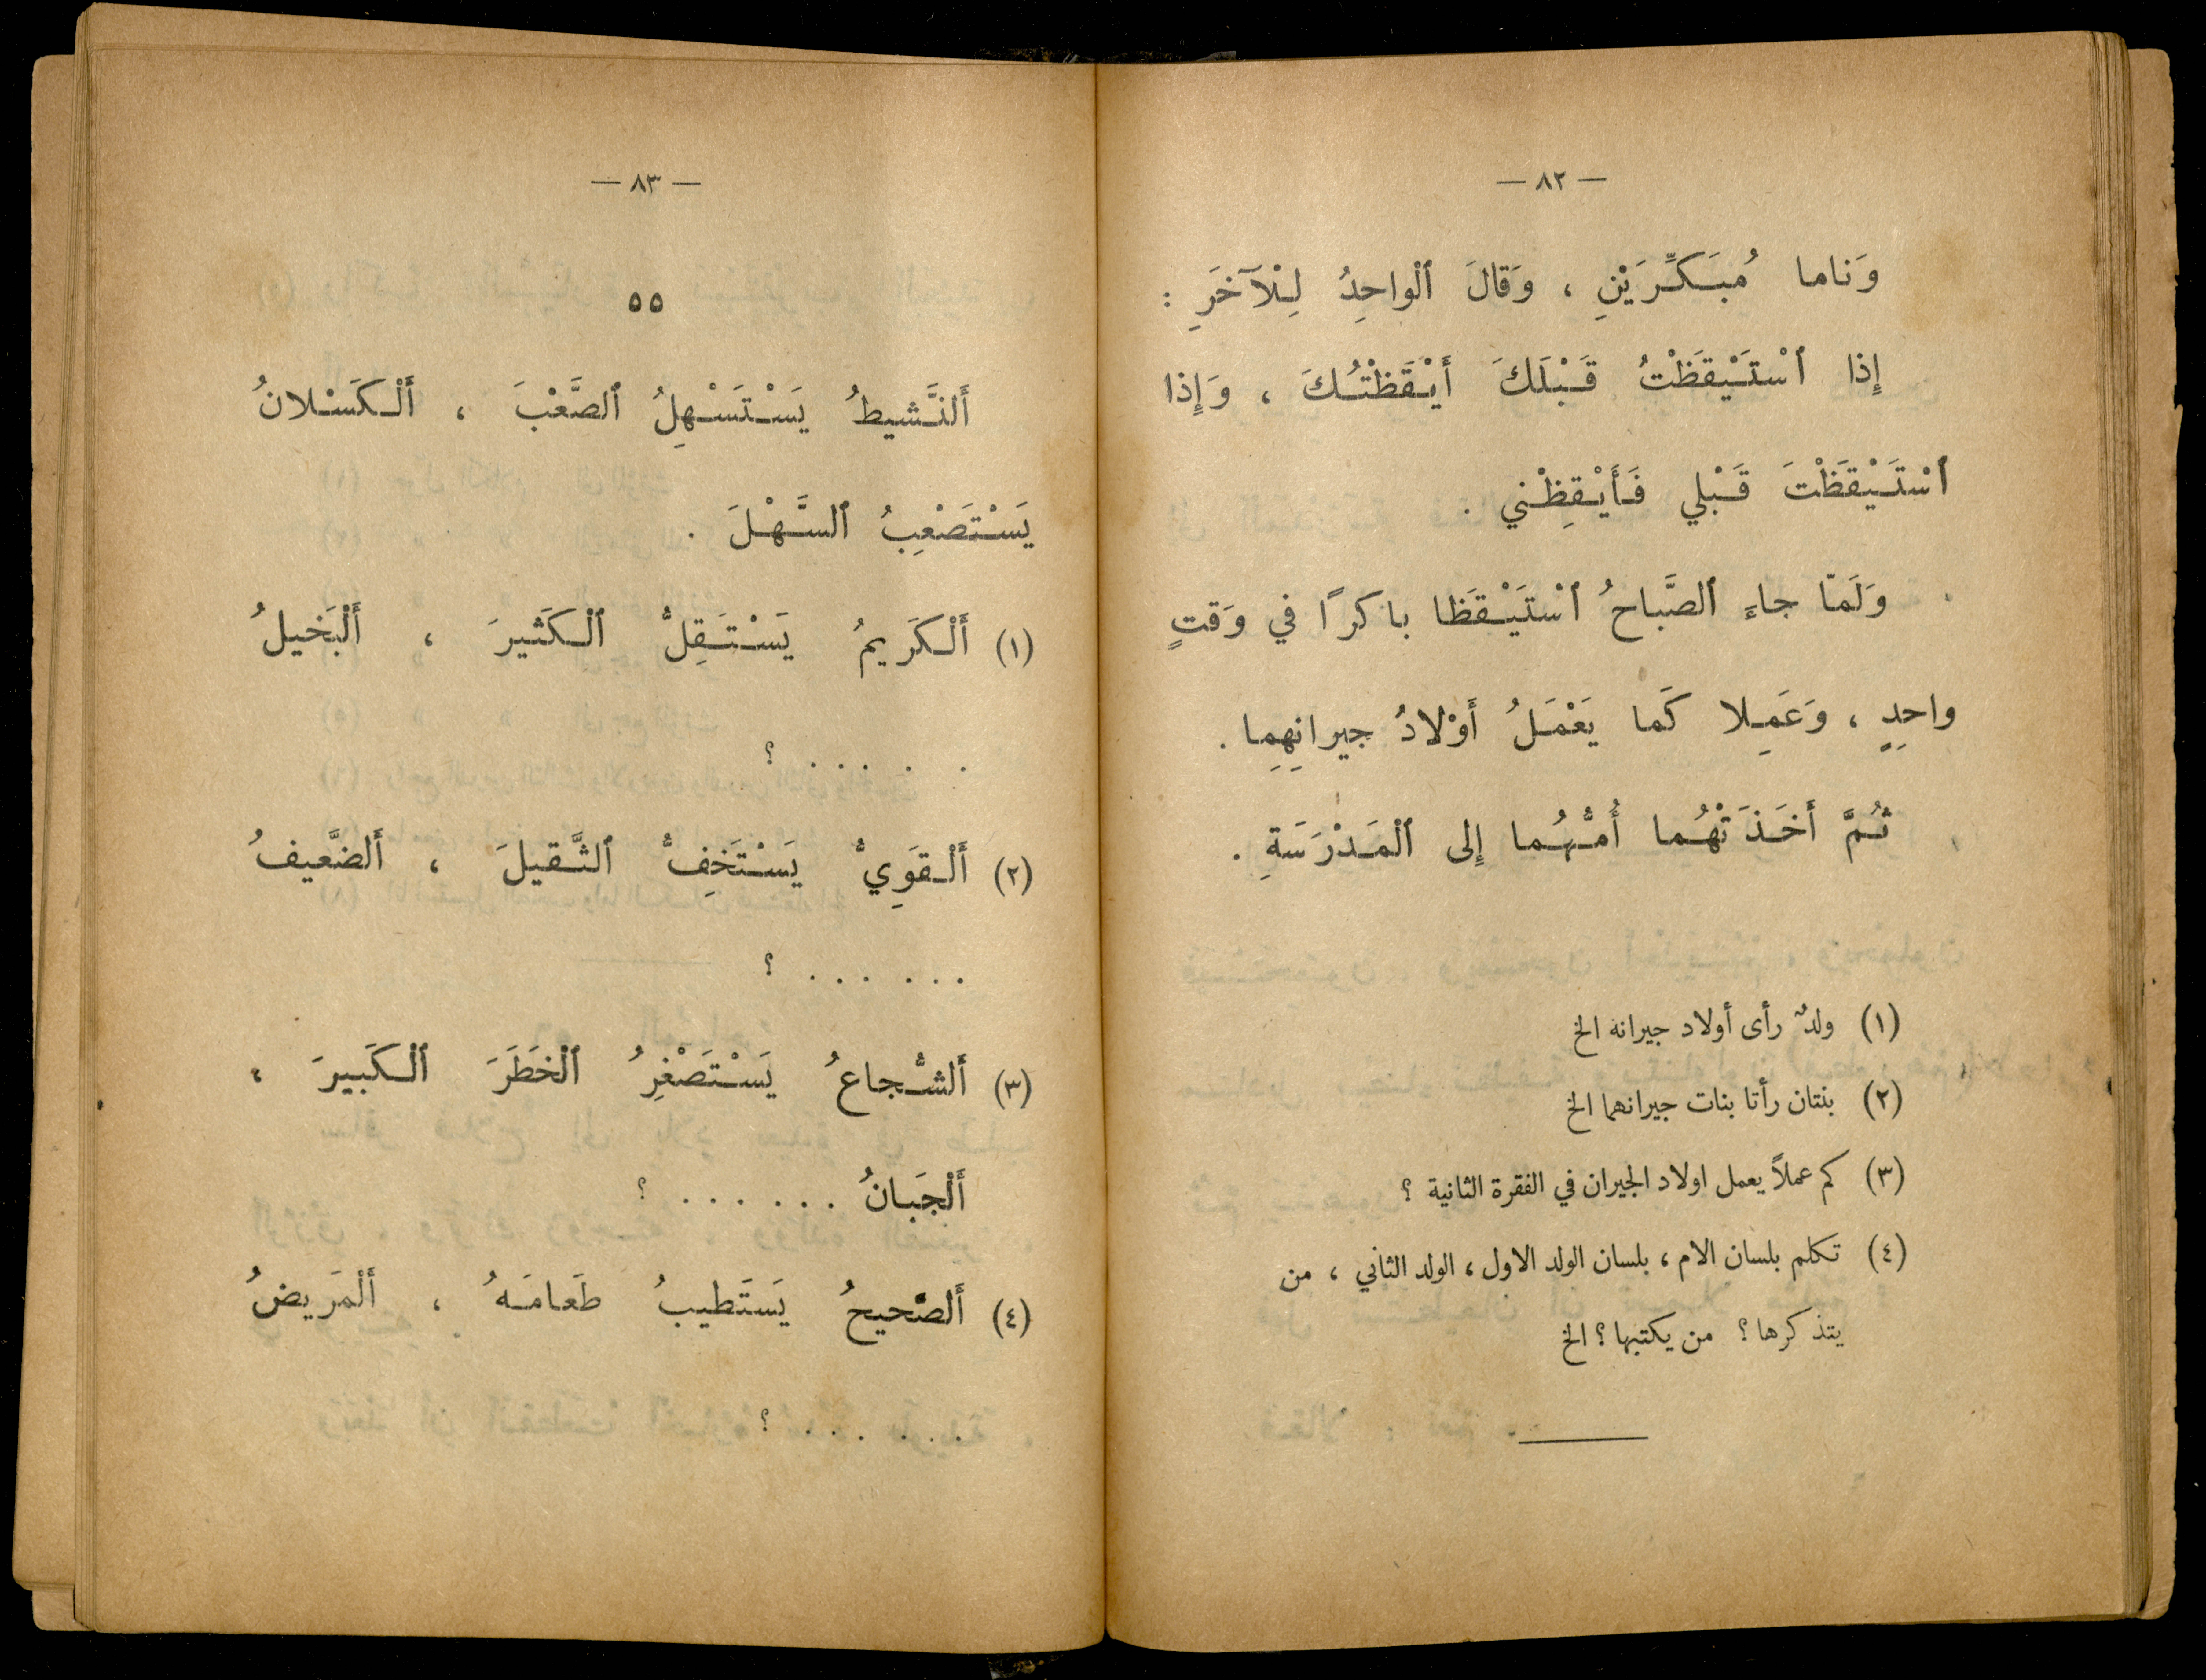 — ٨٢ —
وَناما مُبَكِّرَيْنِ ، وَقالَ ٱلْواحِدُ لِلْآخَرِ :
إِذا ٱسْتَيْقَظْتُ قَبْلَكَ أَيْقَظْتُكَ ، وَإِذا
ٱسْتَيْقَظْتَ قَبْلي فَأَيْقِظْني .
وَلَمّا جاءَ ٱلصَّباحُ ٱسْتَيْقَظا باكرًا في وَقتٍ
واحِدٍ ، وَعَمِلا كَما يَعْمَلُ أَوْلادُ جيرانِهِما .
ثُمَّ أَخَذَتْهُما أُمُّهُما إِلى ٱلْمَدْرَسَةِ .
(١) ولدٌ رأى أولاد جيرانه الخ
(٢) بنتان رأتا بنات جيرانهما الخ
(٣) كم عملاً يعمل اولاد الجيران في الفقرة الثانية ؟
(٤) تكلم بلسان الام ، بلسان الولد الاول ، الولد الثاني ، من
يتذكرها ؟ من يكتبها ؟ الخ
— ٨٣ —
٥٥
أَلنَّشيطُ يَسْتَسْهِلُ ٱلصَّعْبَ ، أَلْكَسْلانُ
يَسْتَصْعِبُ ٱلسَّهْلَ .
(١) أَلْكَريمُ يَسْتَقِلُّ ٱلْكَثيرَ ، أَلْبَخيلُ
. . . . . . ؟
(٢) أَلْقَوِيُّ يَسْتَخِفُّ ٱلثَّقيلَ ، أَلضَّعيفُ
. . . . . . ؟
(٣) أَلشُّجاعُ يَسْتَصْغِرُ ٱلْخَطَرَ ٱلْكَبيرَ ،
أَلْجَبانُ . . . . . . ؟
(٤) أَلصَّحيحُ يَستَطيبُ طَعامَهُ ، أَلْمَريضُ
. . . . . . . ؟